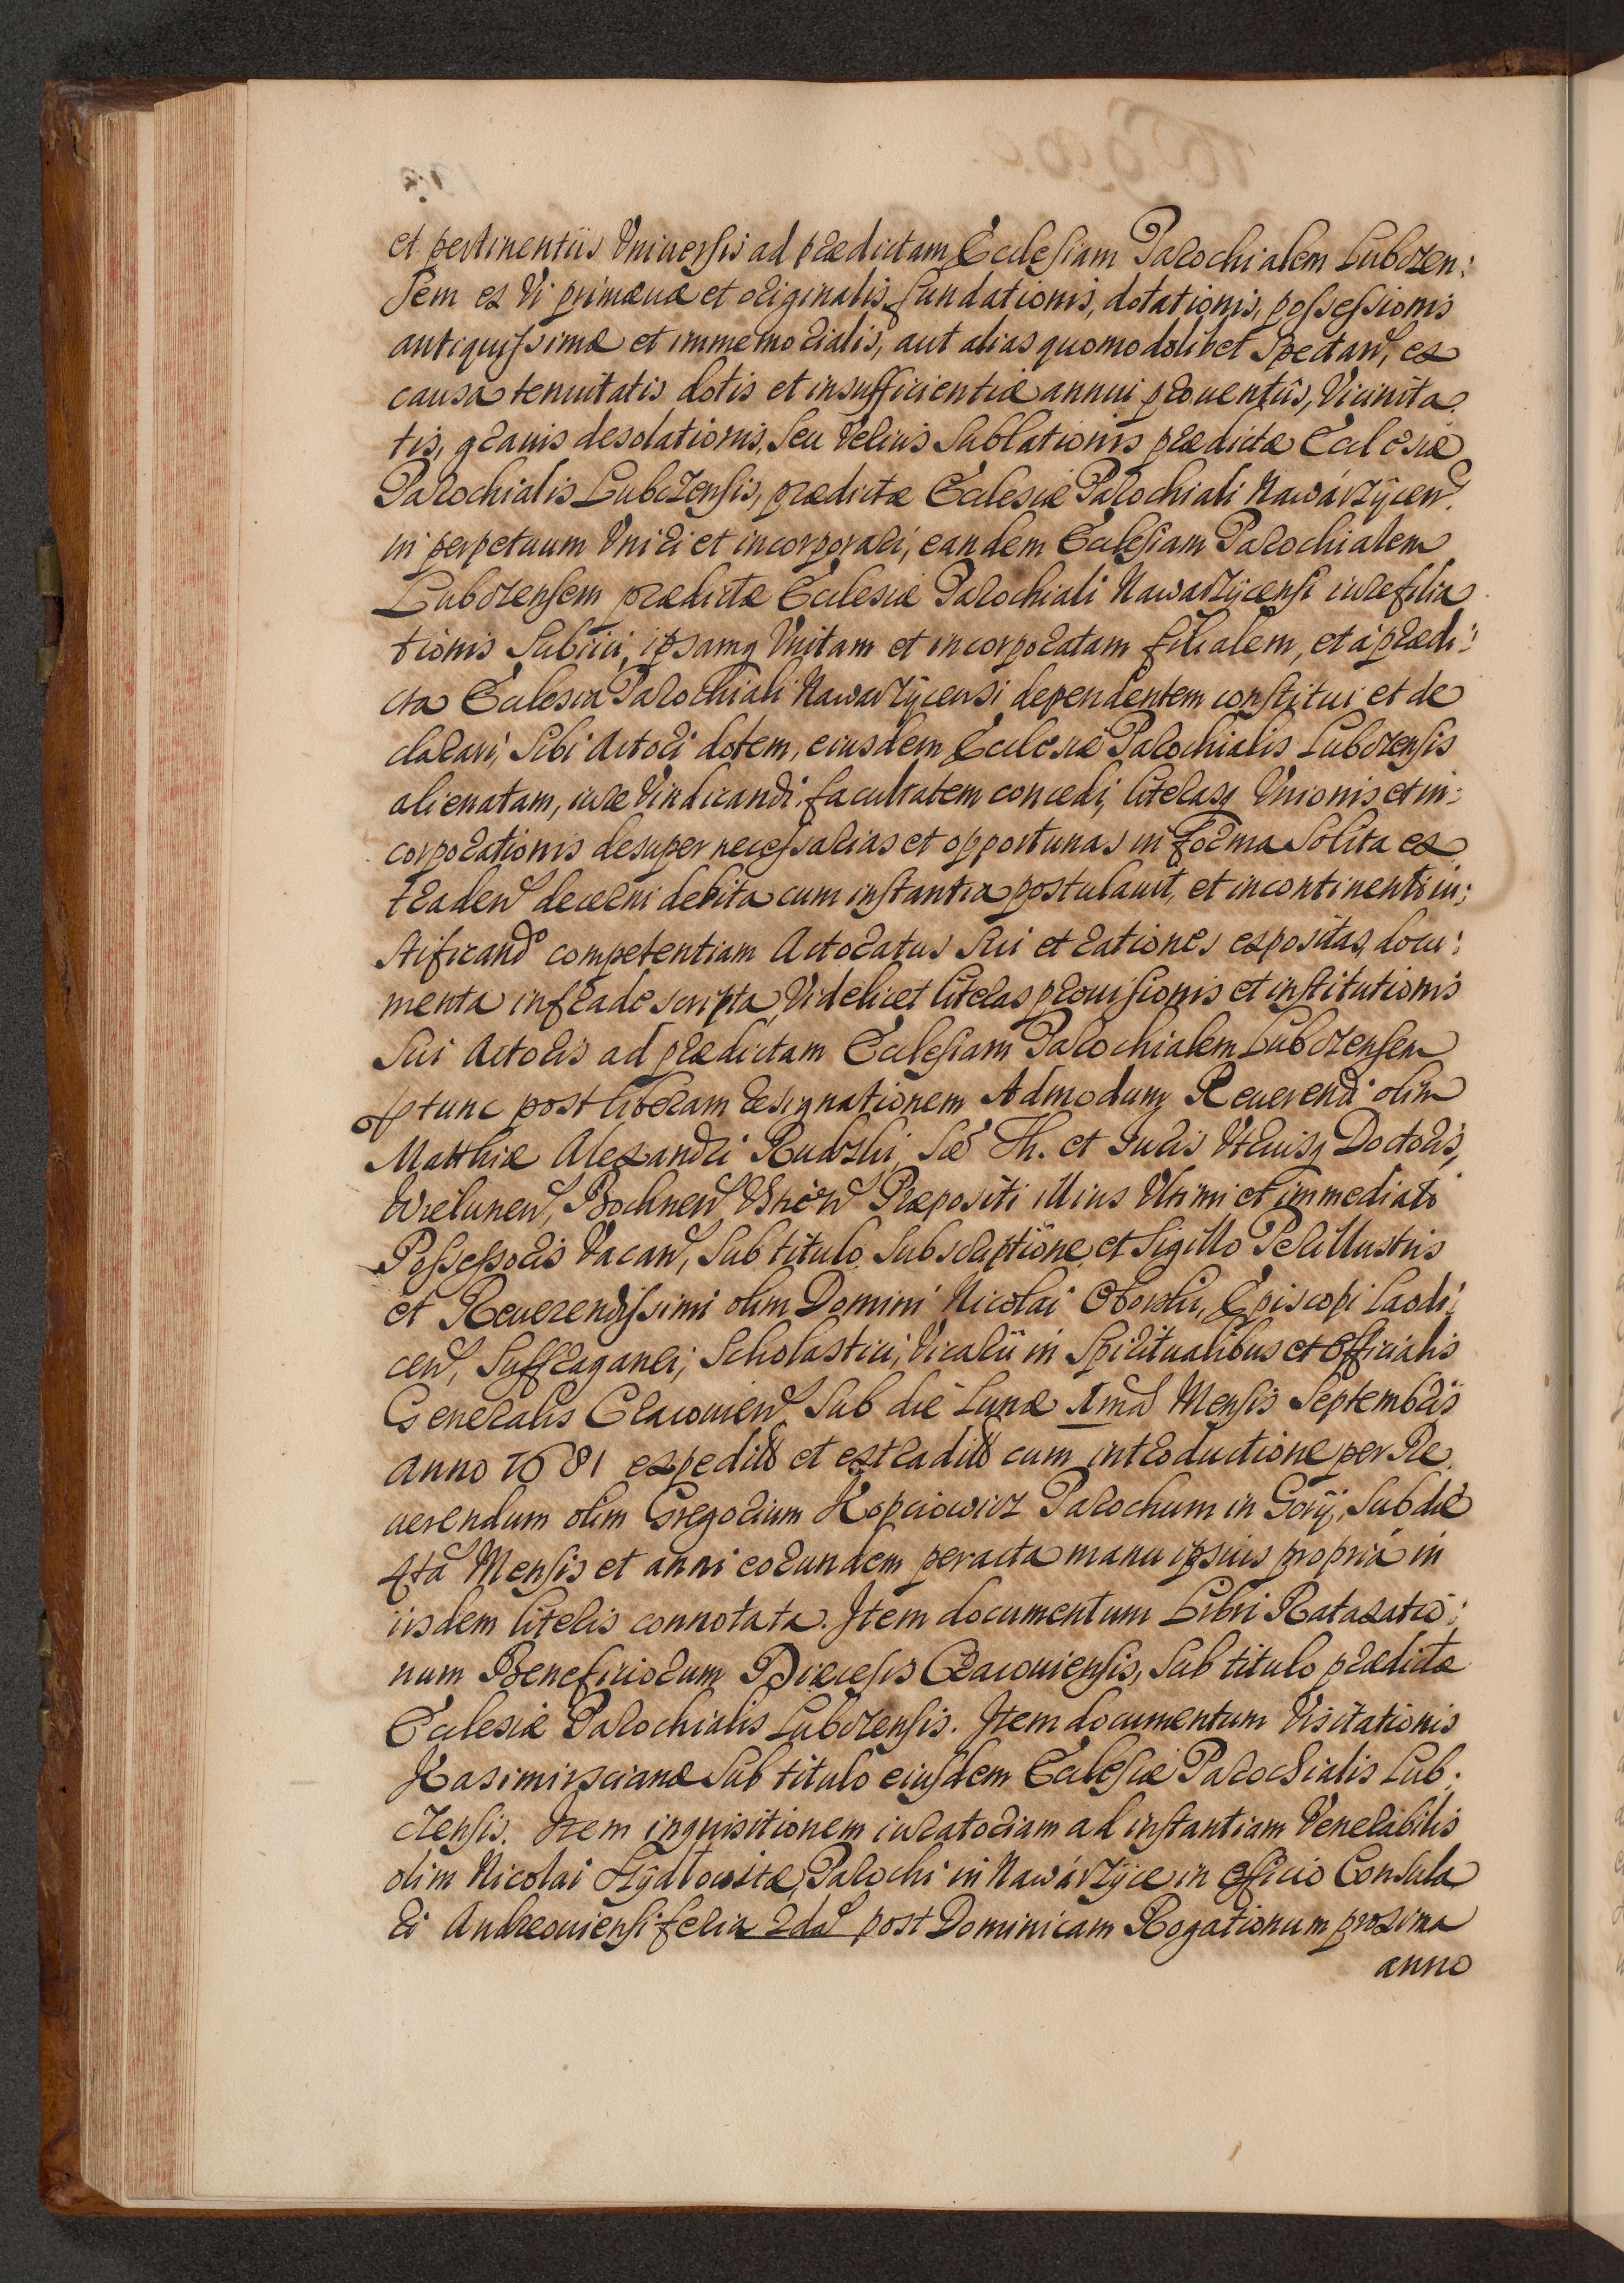 et pertinentiis Vniuersis ad prædictam Ecclesiam Parochialem Lubczen:
sem ex Vi primæuæ et originalis fundationis, dotationis, possessionis
antiquissimæ et immemorialis, aut alias quomodolibet Spectan, ex
causa tenuitatis dotis et insufficientiæ annui prouentûs, Vicinita
tis, grauis desolationis, seu verius Sublationis prædictæ Ecclesiæ
Parochialis Lubczensis, prædictæ Ecclesiæ Parochiali Nawárzÿcen.
in perpetuum Vniri et incorporari, eandem Ecclesiam Parochialem
Lubczensem prædictæ Ecclesiæ Parochiali Nawarzÿcensi iure filia
tionis Subiici, ipsamq Vnitam et incorporatam filialem, et à prædi:
cta Ecclesia Parochiali Nawarzÿcensi dependentem constitui et de
clarari, Sibi Actori dotem, eiusdem Ecclesiæ Parochialis Lubczensis
alienatam, iure Vindicandi facultatem concedi, literasq Vnionis et in:
corporationis desuper necessarias et opportunas in forma Solita ex
traden decerni debita cum instantia postulauit, et incontinenti iu:
stificando competentiam Actoratus Sui et rationes expositas, docu:
menta infradescripta, Videlicet literas prouisionis et institutionis
Sui Actoris ad prædictam Ecclesiam Parochialem Lubczensem
tunc post liberam resignationem Admodum Reuerendi olim
Matthiæ Alexandri Rudzki, Sæ Th. et Iuris Vtriusq Doctoris,
Wielunen, Bochnen Præpositi illius Vltimi et immediati
Possessoris Vacan, Sub titulo Subscriptione et Sigillo Perillustris
et Reuerendissimi olim Domini Nicolai Oborski, Episcopi Laodi:
cen, Suffraganei, Scholastici, Vicarii in Spiritualibus et Officialis
Generalis Cracouien Sub die Lunæ 1ma Mensis Septembris
anno 1681 expeditas et extraditas cum introductione per Re
uerendum olim Gregorium Kopciowicz Parochum in Gorÿ, Sub die
4ta Mensis et anni eorundem peracta manu ipsius propriâ in
iisdem literis connotata. Item documentum Libri Rataxatio:
num Beneficiorum Diæcesis Cracouiensis, Sub titulo prædictæ
Ecclesiæ Parochialis Lubczensis. Item documentum Visitationis
Kasimirscianæ Sub titulo eiusdem Ecclesiæ Parochialis Lub:
czensis. Item inquisitionem iuratoriam ad instantiam Venerabilis
olim Nicolai Szÿdlowitæ, Parochi in Nawárzÿce in officio Consula
ri Andreouiensi feria 2da post Dominicam Rogationum proxima
anno